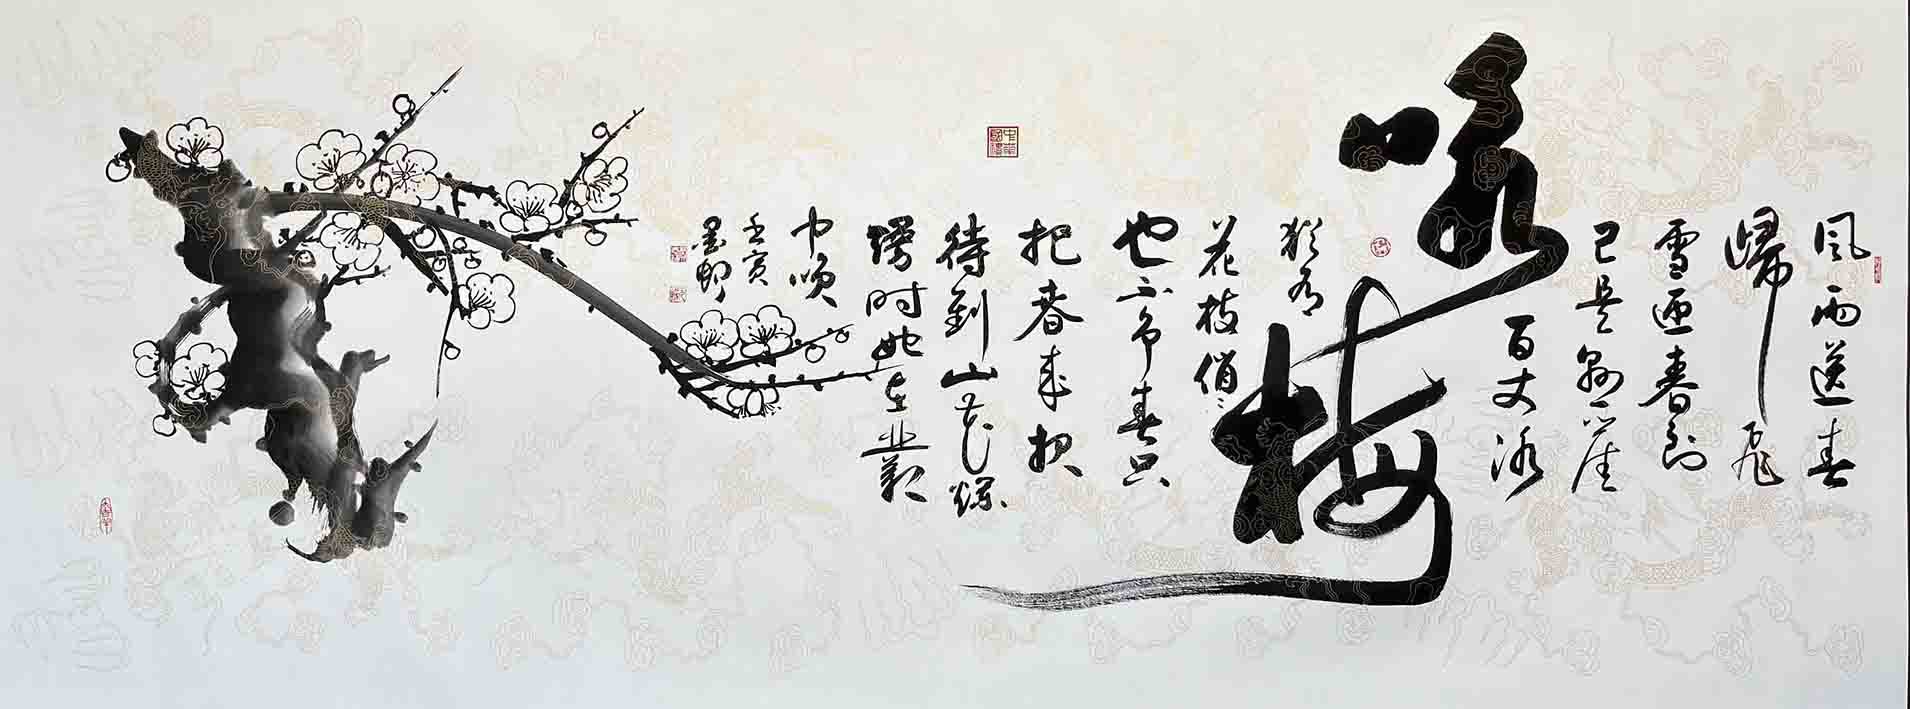 風雨送春
歸飛
雪迎春到
已是懸崖
百丈冰
咏梅
犹有
花枝俏〻
也不争春只
把春来报
待到山花爛
漫时她在叢
中咲
壬寅